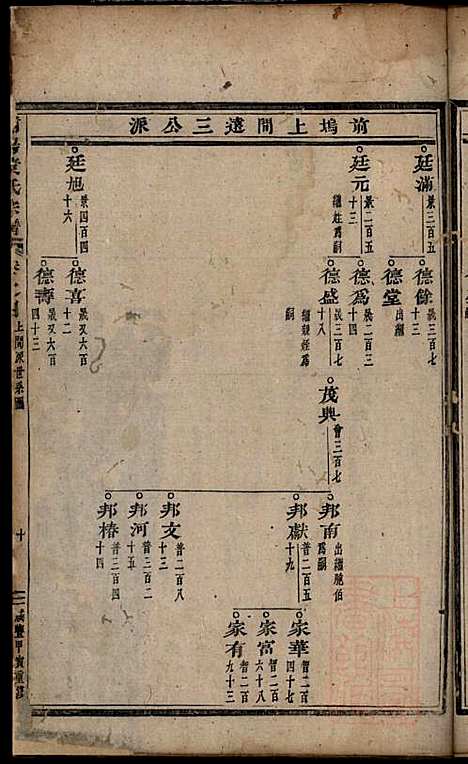 前塢上間逵三公派
廷滿
景三百五
廷元
景二百五
十三
繼姪爲嗣
廷旭
景四百四
十六
德餘
晟三百七
十三
德堂
出繼
德爲
晟二百三
十四
德盛
晟三百七
十八
繼親姪爲
嗣
德喜
晟又六百
十二
德壽
晟又六百
四十三
茂興
會三百七
邦南
出繼胞伯
爲嗣
邦獻
普二百五
十九
邦文
普二百八
十三
邦河
普三百二
十五
邦椿
普三百四
十四
家華
智二百
四十七
家富
智二百
六十八
家有
智二百
九十三
氏宗譜
上間派世系圖
十
咸豐甲寅重修